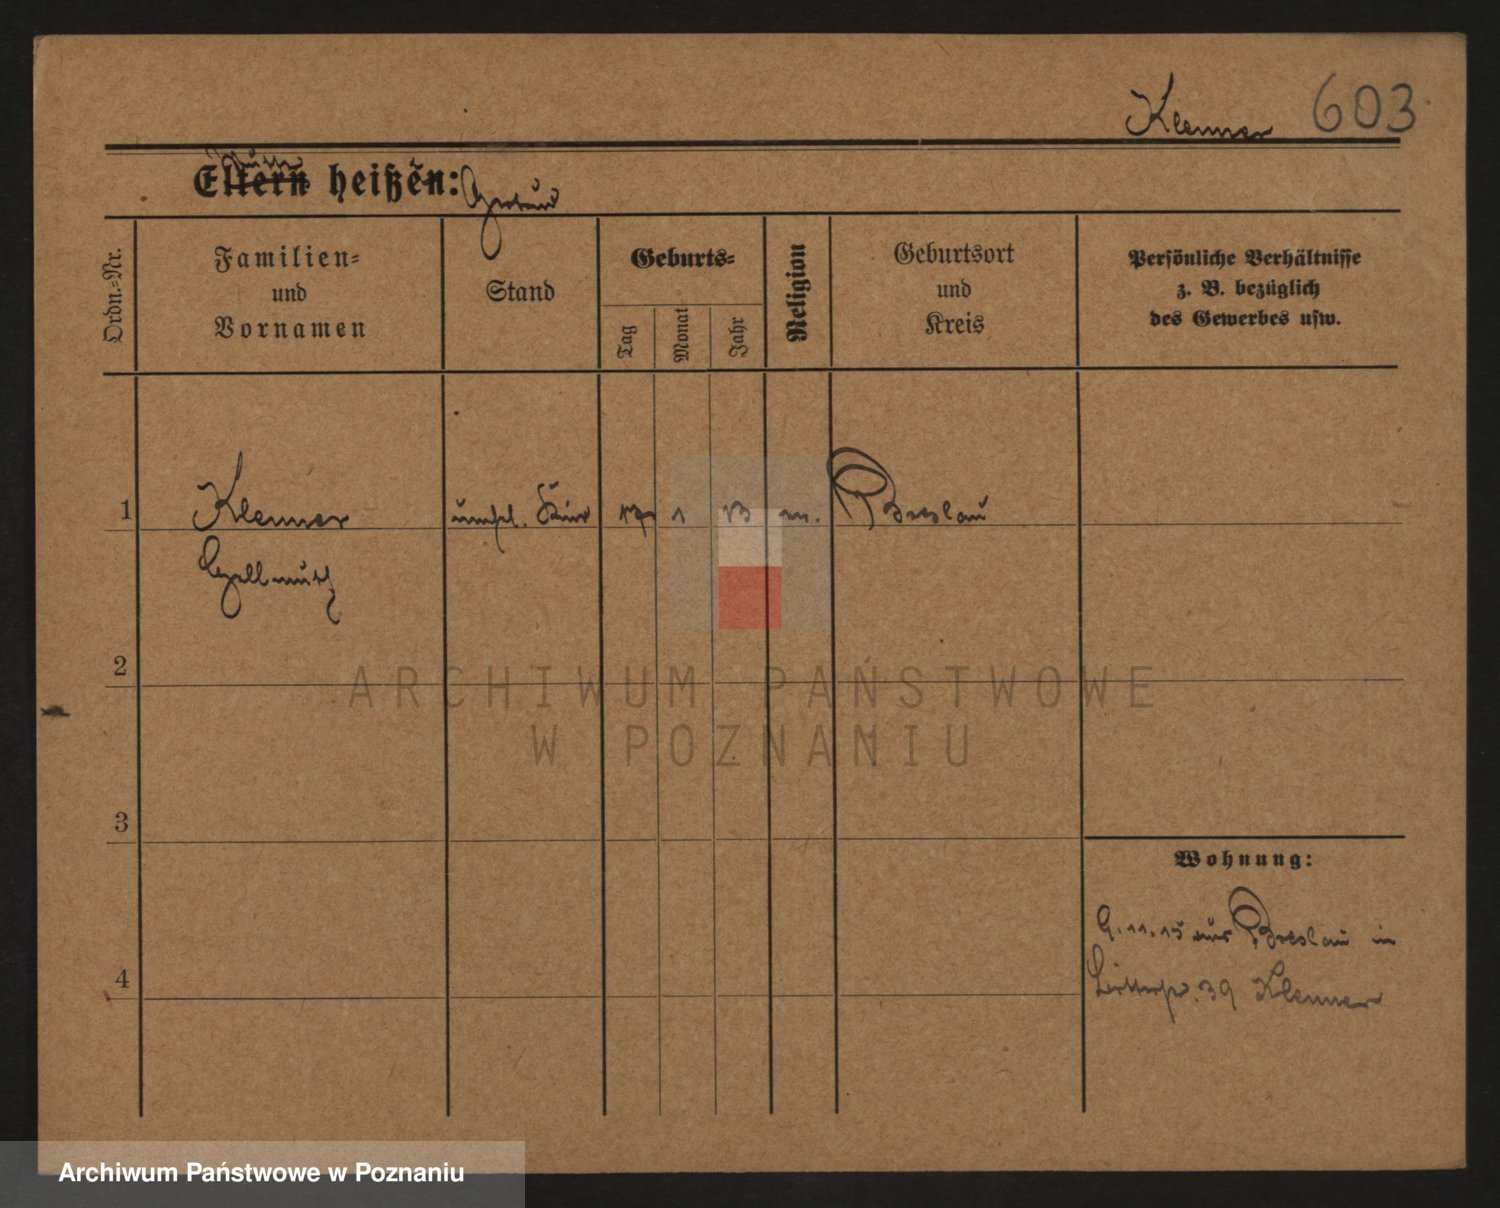 Klenner 603
Eltern heißen:
Ordn.-Nr.
Familien-
und
Vornamen
Stand
Geburts-
Tag
Monat
Jahr
Religion
Geburtsort
und
Kreis
Persönliche Verhältnisse
z. B. bezüglich
des Gewerbes usw.
1 Klenner unehl. Kind 17 1 13 Breslau
Hellmuth
2
3
4
Wohnung:
9.11.15 aus Breslau in
39 Klenner
ARCHIWUM PAŃSTWOWE
W POZNANIU
Archiwum Państwowe w Poznaniu